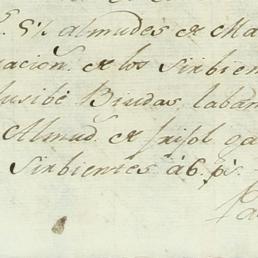 5½ almudes de Ma
uacion. de los Sirbien
lusibe Biudas, laban
Almud. de frisol ga
Sirbientes á 6. ps.